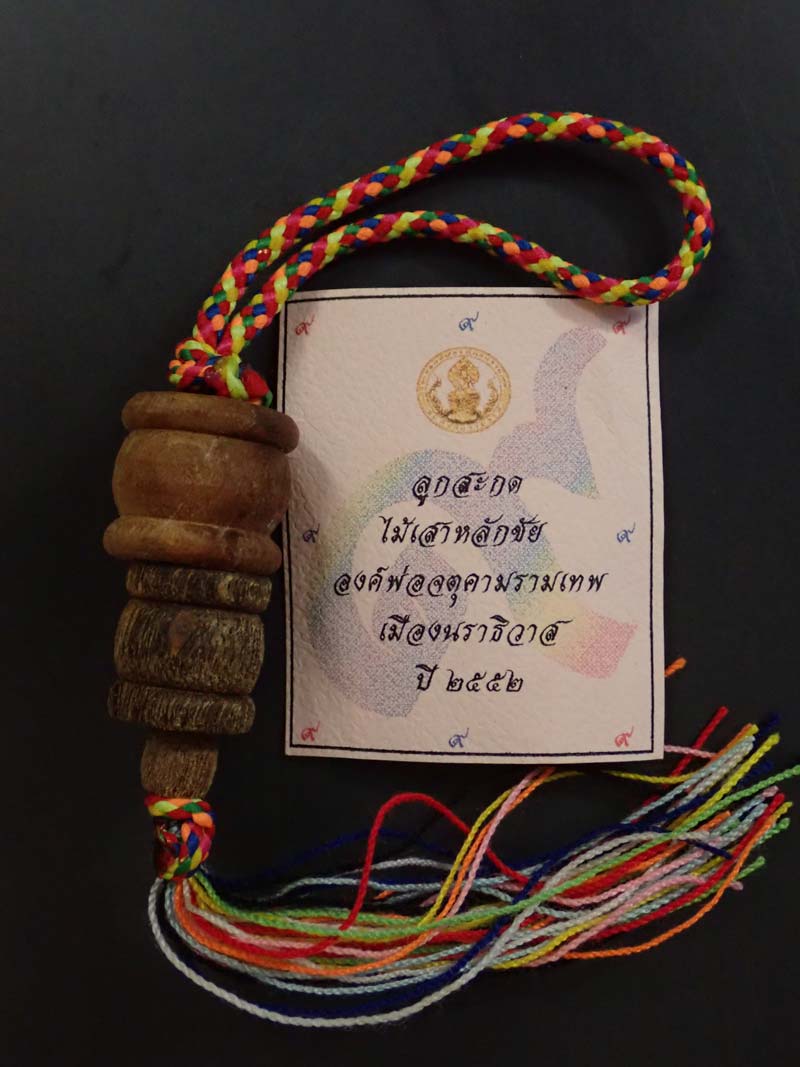 ๙ ๙ ๙
ลูกสะกด
ไม้เสาหลักชัย
๙ ๙
องค์พ่อจตุคามรามเทพ
เมืองนราธิวาส
ปี ๒๕๕๒
๙ ๙ ๙